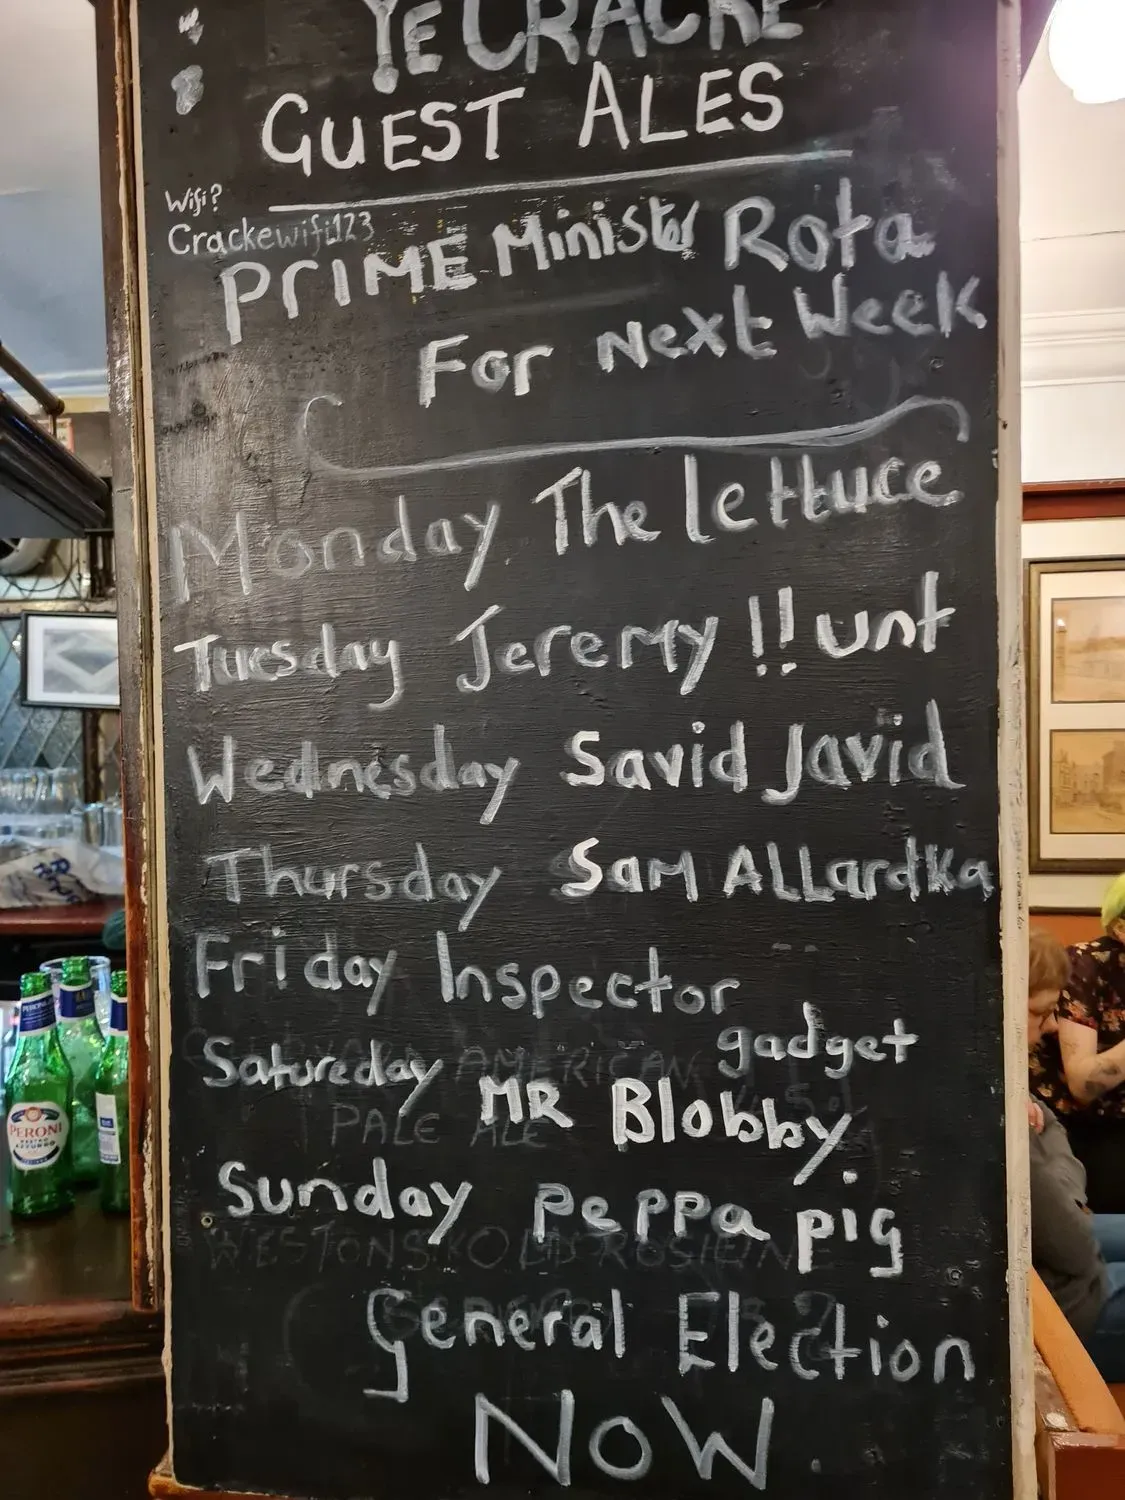 YE CRACKE
GUEST ALES
Wifi?
Crackewifi123
PRIME Minister Rota
For Next Week
Monday The lettuce
Tuesday Jeremy !!unt
Wednesday Savid Javid
Thursday Sam ALLardKa
Friday Inspector
gadget
Satureday MR Blobby.
AMERICAN
PALE ALE
Sunday peppa pig
WESTONS OLD ROSIE
General Election
NOW.
PERONI
NASTRO
AZZURRO